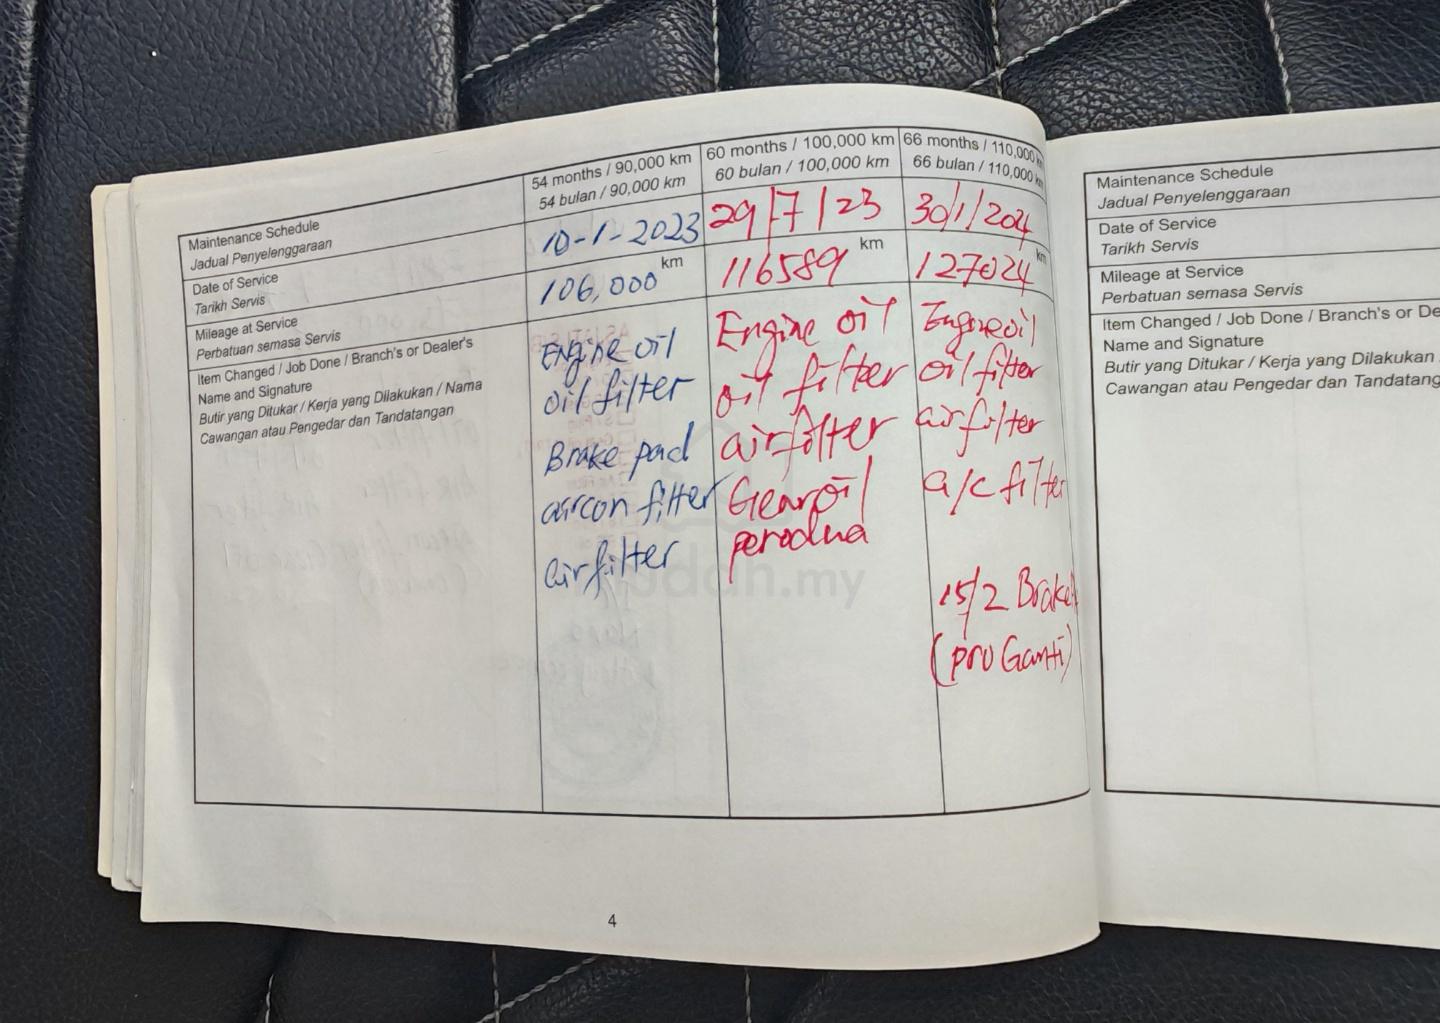 54 months / 90,000 km
54 bulan / 90,000 km
60 months / 100,000 km
60 bulan / 100,000 km
66 months / 110,000 km
66 bulan / 110,000 km
Maintenance Schedule
Jadual Penyelenggaraan
Date of Service
Tarikh Servis
10-1-2023
29/7/23
30/1/2024
Mileage at Service
Perbatuan semasa Servis
106,000 km
116589 km
127024 km
Item Changed / Job Done / Branch's or Dealer's
Name and Signature
Butir yang Ditukar / Kerja yang Dilakukan / Nama
Cawangan atau Pengedar dan Tandatangan
Engine oil
oil filter
Brake pad
aircon filter
air filter
Engine oil
oil filter
air filter
Gear oil
perodua
Engine oil
oil filter
air filter
a/c filter
15/2 Brake
(pro Ganti)
mudah.my
4
Maintenance Schedule
Jadual Penyelenggaraan
Date of Service
Tarikh Servis
Mileage at Service
Perbatuan semasa Servis
Item Changed / Job Done / Branch's or De
Name and Signature
Butir yang Ditukar / Kerja yang Dilakukan
Cawangan atau Pengedar dan Tandatang